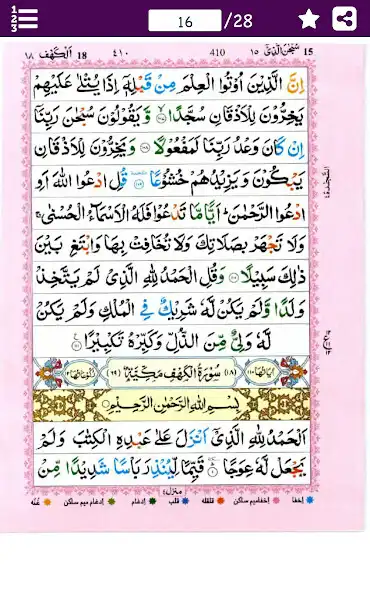 16 /28
١٨ اَلْكَهْف 18 ٤١٠ 410 سُبْحٰنَ الَّذِيْٓ ١٥ 15
اِنَّ الَّذِيْنَ اُوْتُوا الْعِلْمَ مِنْ قَبْلِهٖٓ اِذَا يُتْلٰى عَلَيْهِمْ
يَخِرُّوْنَ لِلْاَذْقَانِ سُجَّدًا ۙ﴿١٠٧﴾ وَّيَقُوْلُوْنَ سُبْحٰنَ رَبِّنَآ
اِنْ كَانَ وَعْدُ رَبِّنَا لَمَفْعُوْلًا ﴿١٠٨﴾ وَيَخِرُّوْنَ لِلْاَذْقَانِ
يَبْكُوْنَ وَيَزِيْدُهُمْ خُشُوْعًا ﴿١٠٩﴾ قُلِ ادْعُوا اللّٰهَ اَوِ
ادْعُوا الرَّحْمٰنَ ؕ اَيًّامَّا تَدْعُوْا فَلَهُ الْاَسْمَآءُ الْحُسْنٰى ۚ
وَلَا تَجْهَرْ بِصَلَاتِكَ وَلَا تُخَافِتْ بِهَا وَابْتَغِ بَيْنَ
ذٰلِكَ سَبِيْلًا ﴿١١٠﴾ وَقُلِ الْحَمْدُ لِلّٰهِ الَّذِيْ لَمْ يَتَّخِذْ
وَلَدًا وَّلَمْ يَكُنْ لَّهٗ شَرِيْكٌ فِي الْمُلْكِ وَلَمْ يَكُنْ
لَّهٗ وَلِيٌّ مِّنَ الذُّلِّ وَكَبِّرْهُ تَكْبِيْرًا ﴿١١١﴾
اٰيَاتُهَا ١١٠ (١٨) سُوْرَةُ الْكَهْفِ مَكِّيَّةٌ (٦٩) رُكُوْعَاتُهَا ١٢
بِسْمِ اللّٰهِ الرَّحْمٰنِ الرَّحِيْمِ
اَلْحَمْدُ لِلّٰهِ الَّذِيْٓ اَنْزَلَ عَلٰى عَبْدِهِ الْكِتٰبَ وَلَمْ
يَجْعَلْ لَّهٗ عِوَجًا ﴿١﴾ قَيِّمًا لِّيُنْذِرَ بَاْسًا شَدِيْدًا مِّنْ
منزل٤
اِخفا اِخفامیم ساکن قلقله قلب اِدغام اِدغام میم ساکن غُنّه